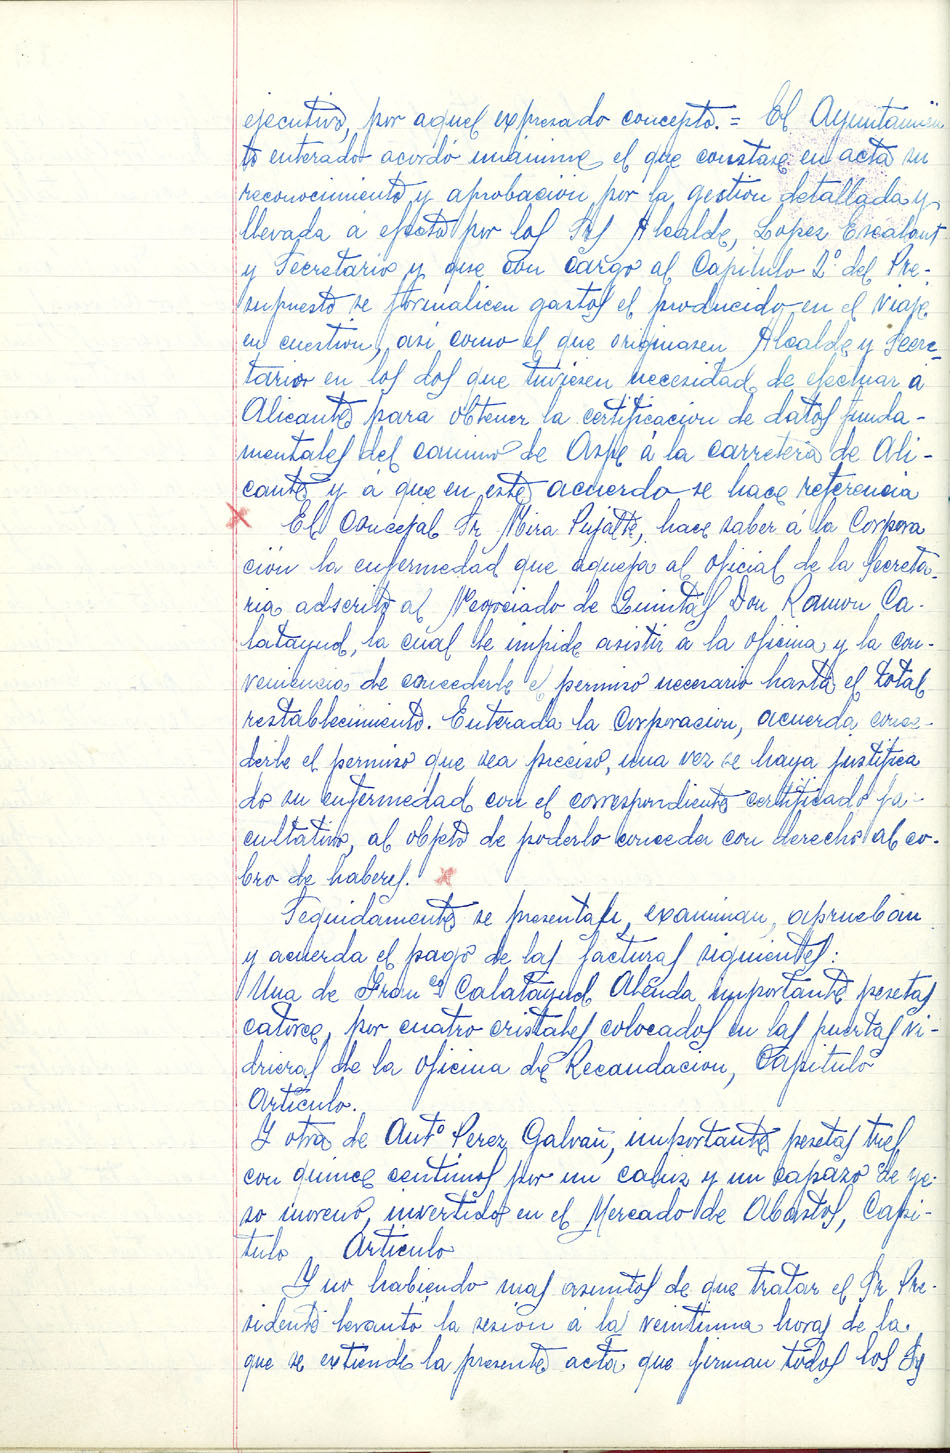 ejecutivo, por aquel expresado concepto. = El Ayuntamien
to enterado acordó unánime el que constase en acta su
reconocimiento y aprobación por la gestion detallada y
llevada á efecto por los Srs Alcalde, Lopez Escalant
y Secretario y que con cargo al Capitulo 2º del Pre-
supuesto se formalicen gastos el producido en el viaje
en cuestion, asi como el que originasen Alcalde y Secre-
tario en los dos que tuviesen necesidad de efectuar á
Alicante para obtener la certificacion de datos funda-
mentales del camino de Aspe á la carretera de Ali-
cante y á que en este acuerdo se hace referencia
El Concejal Sr Mira Pujalte, hace saber á la Corpora
ción la enfermedad que aqueja al oficial de la Secreta-
ria adscrito al Negociado de Quintas Don Ramon Ca-
latayud, la cual le impide asistir á la oficina y la con-
veniencia de concederle el permiso necesario hasta el total
restablecimiento. Enterada la Corporacion, acuerda conce-
derle el permiso que sea preciso, una vez se haya justifica
do su enfermedad con el correspondiente certificado fa-
cultativo, al objeto de poderlo conceder con derecho al co-
bro de haberes.
Seguidamente se presentan, examinan, aprueban
y acuerda el pago de las facturas siguientes:
Una de Francº Calatayud Abenda importante pesetas
catorce, por cuatro cristales colocados en las puertas vi-
drieras de la oficina de Recaudacion, Capitulo
Articulo.
Y otra de Antº Perez Galvañ, importante pesetas tres
con quince centimos por un cahiz y un capazo de ye-
so moreno, invertido en el Mercado de Abastos, Capi-
tulo Articulo
Y no habiendo mas asuntos de que tratar el Sr Pre-
sidente levantó la sesion á la veintiuna horas de la
que se extiende la presente acta que firman todos los Srs